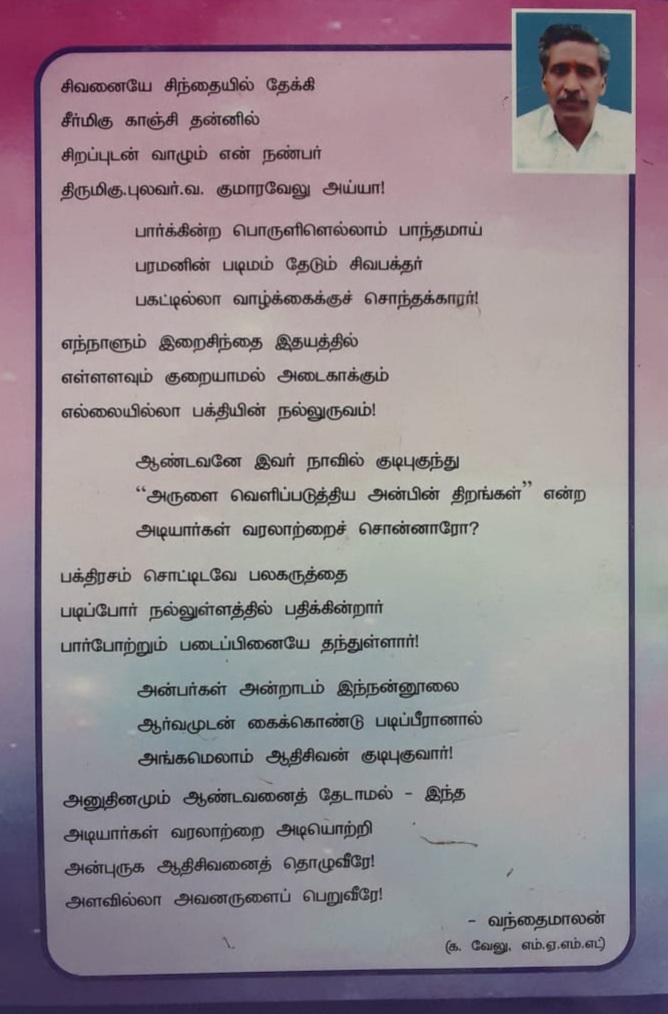 சிவனையே சிந்தையில் தேக்கி
சீர்மிகு காஞ்சி தன்னில்
சிறப்புடன் வாழும் என் நண்பர்
திருமிகு.புலவர்.வ. குமாரவேலு அய்யா!
பார்க்கின்ற பொருளிளெல்லாம் பாந்தமாய்
பரமனின் படிமம் தேடும் சிவபக்தர்
பகட்டில்லா வாழ்க்கைக்குச் சொந்தக்காரர்!
எந்நாளும் இறைசிந்தை இதயத்தில்
எள்ளளவும் குறையாமல் அடைகாக்கும்
எல்லையில்லா பக்தியின் நல்லுருவம்!
ஆண்டவனே இவர் நாவில் குடிபுகுந்து
“அருளை வெளிப்படுத்திய அன்பின் திறங்கள்” என்ற
அடியார்கள் வரலாற்றைச் சொன்னாரோ?
பக்திரசம் சொட்டிடவே பலகருத்தை
படிப்போர் நல்லுள்ளத்தில் பதிக்கின்றார்
பார்போற்றும் படைப்பினையே தந்துள்ளார்!
அன்பர்கள் அன்றாடம் இந்நன்னூலை
ஆர்வமுடன் கைக்கொண்டு படிப்பீரானால்
அங்கமெலாம் ஆதிசிவன் குடிபுகுவார்!
அனுதினமும் ஆண்டவனைத் தேடாமல் - இந்த
அடியார்கள் வரலாற்றை அடியொற்றி
அன்புருக ஆதிசிவனைத் தொழுவீரே!
அளவில்லா அவனருளைப் பெறுவீரே!
- வந்தைமாலன்
(க. வேலு, எம்.ஏ.எம்.எட்)